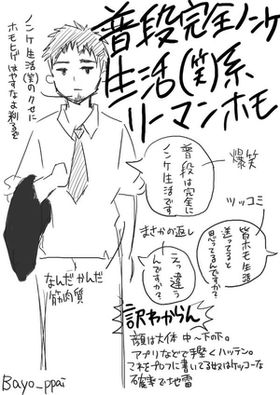 普段完全ノンケ
生活(笑)系
リーマンホモ
ノンケ生活(笑)のクセに
ホモヒゲはやすなよ剃るぞ
普段は完全に
ノンケ生活です
爆笑
ツッコミ
皆ホモ生活
送ってると
思ってるんですか?
まさかの返し
えっ違う
んですか?
なんだかんだ
筋肉質
訳わからん
顔は大体 中〜下の下。
アプリなどで手堅くハッテン。
これをプロフに書いてる奴はケッコーな
確率で地雷
Bayo_ppai